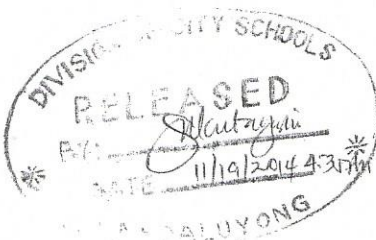 DIVISION OF CITY SCHOOLS
RELEASED
BY:
DATE 11/19/2014 4:35PM
MANDALUYONG